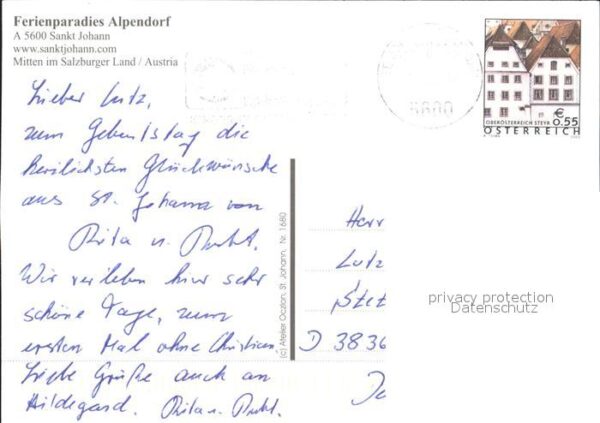 Ferienparadies Alpendorf
A 5600 Sankt Johann
www.sanktjohann.com
Mitten im Salzburger Land / Austria
Lieber Lutz,
zum Geburtstag die
herzlichsten Glückwünsche
aus St. Johann von
Rita u.
Wir verleben hier sehr
schöne Tage, zum
ersten Mal ohne Christian.
Liebe Grüße auch an
Hildegard. Rita u.
(c) Atelier Oczlon, St. Johann, Nr. 1680
5600
OBERÖSTERREICH STEYR
€ 0,55
ÖSTERREICH
Herr
Lutz
D 3836
privacy protection
Datenschutz